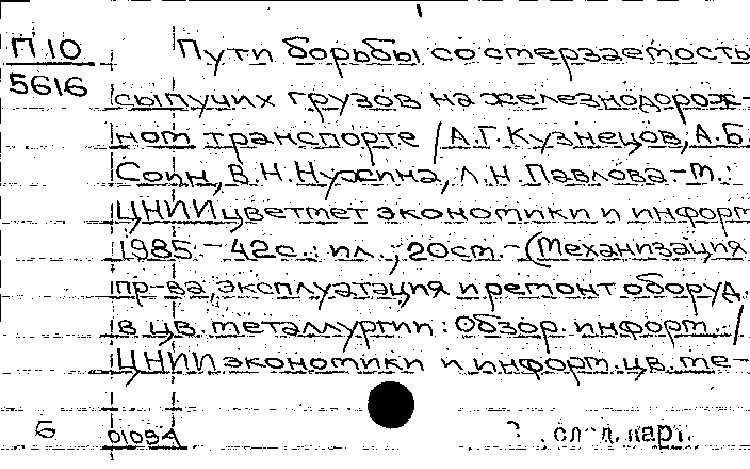 П 10
5616
Пути борьбы со смерзаемостью
сыпучих грузов на железнодорож-
ном транспорте / А.Г. Кузнецов, А.Б.
Соин, В.Н. Нуссина, Л.Н. Павлова - М.:
ЦНИИцветмет экономики и информ
1985. - 42с.: ил.; 20см. - (Механизация
пр-ва, эксплуатация и ремонт оборуд.
в цв. металлургии: Обзор. информ. /
ЦНИИ экономики и информ. цв. ме-
б 01094 сл-д. карт.